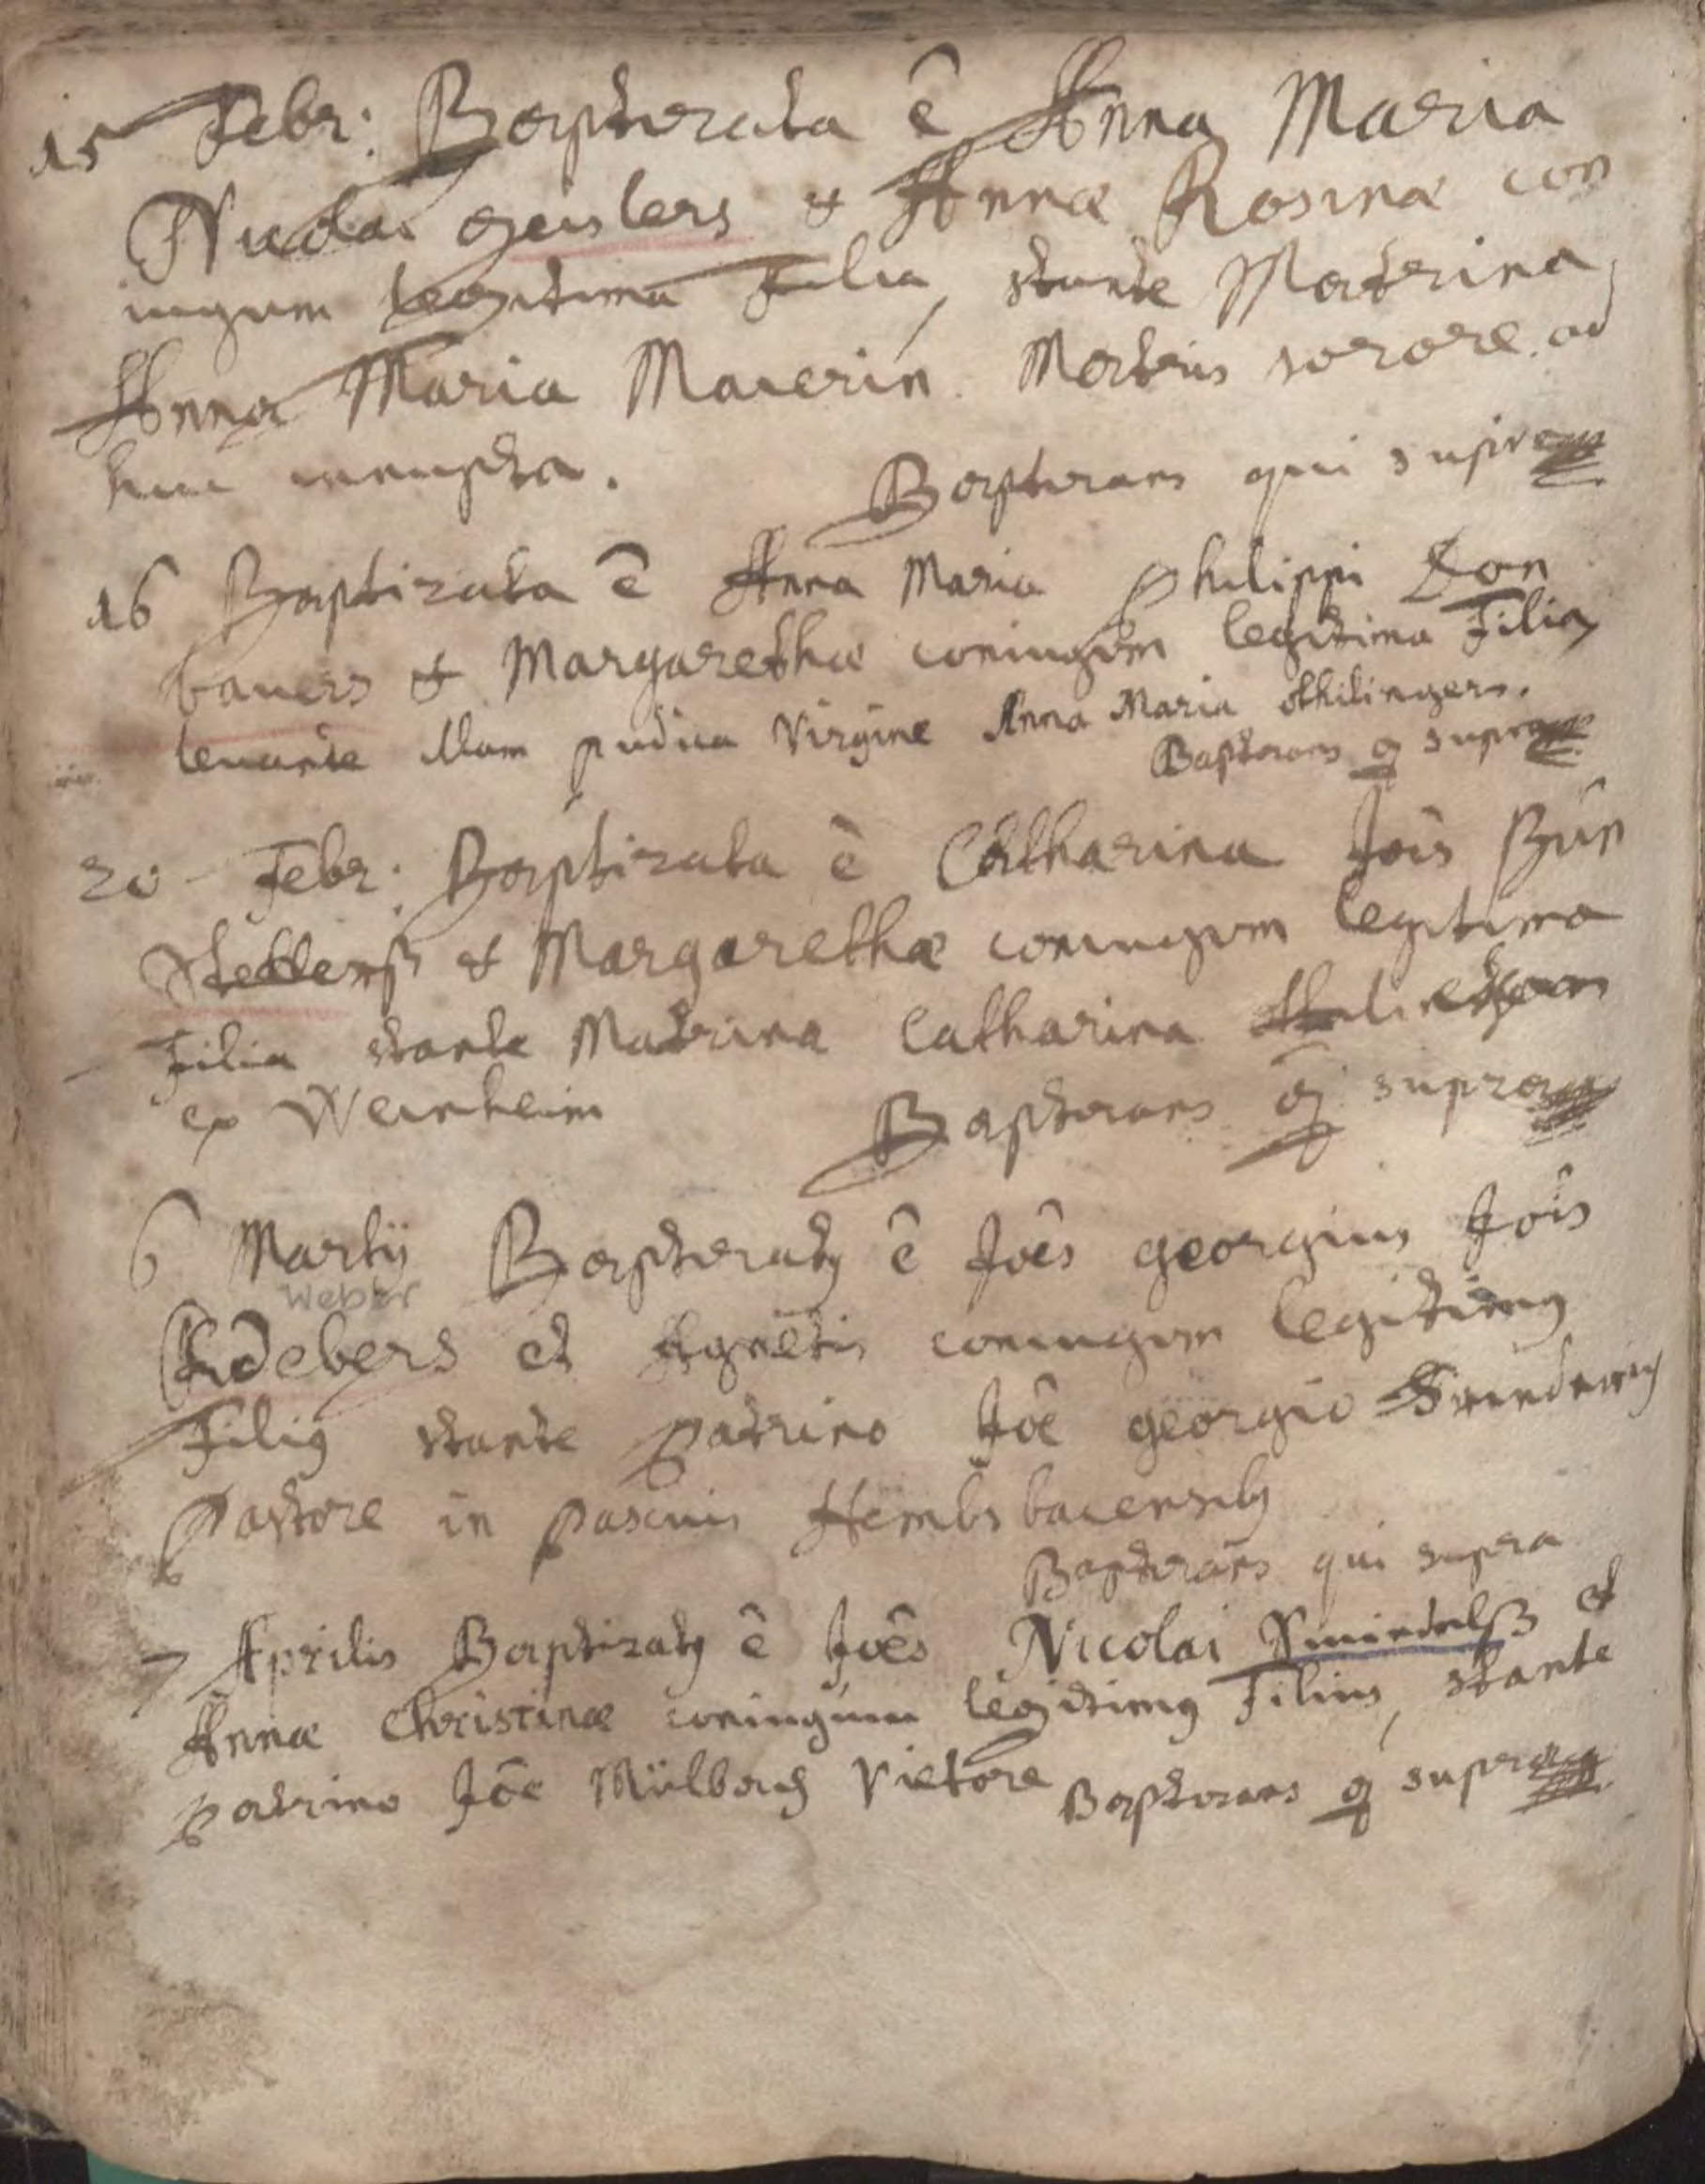 15 Febr: Baptizata ê Anna Maria
Nicolai geislers & Annæ Rosinæ con
iugum legitima Filia, stante Matrina,
Anna Maria Maierin Matris sorore ad
huc innupta. Baptizans qui supra
16 Baptizata ê Anna Maria Philippi Don
bauers & Margarethæ coniugum legitima Filia,
levante illam pudica Virgine Anna Maria
Baptizans q supra
20 Febr: Baptizata ê Catharina Jois Bün
& Margarethæ coniugum legitima
Filia stante Matrina Catharina
ex Weinheim Baptizans q supra
6 Martij Baptizatus ê Joês georgius Jois
Weber
et Agnetis coniugum legitimus
Filius stante patrino Joê georgio
pastore in pascuis Hembsbacensibus
Baptizans qui supra
7 Aprilis Baptizatus ê Joês Nicolai et
Annæ Christinæ coniugum legitimus Filius, stante
patrino Jôe Mülbach Vietore Baptizans q supra